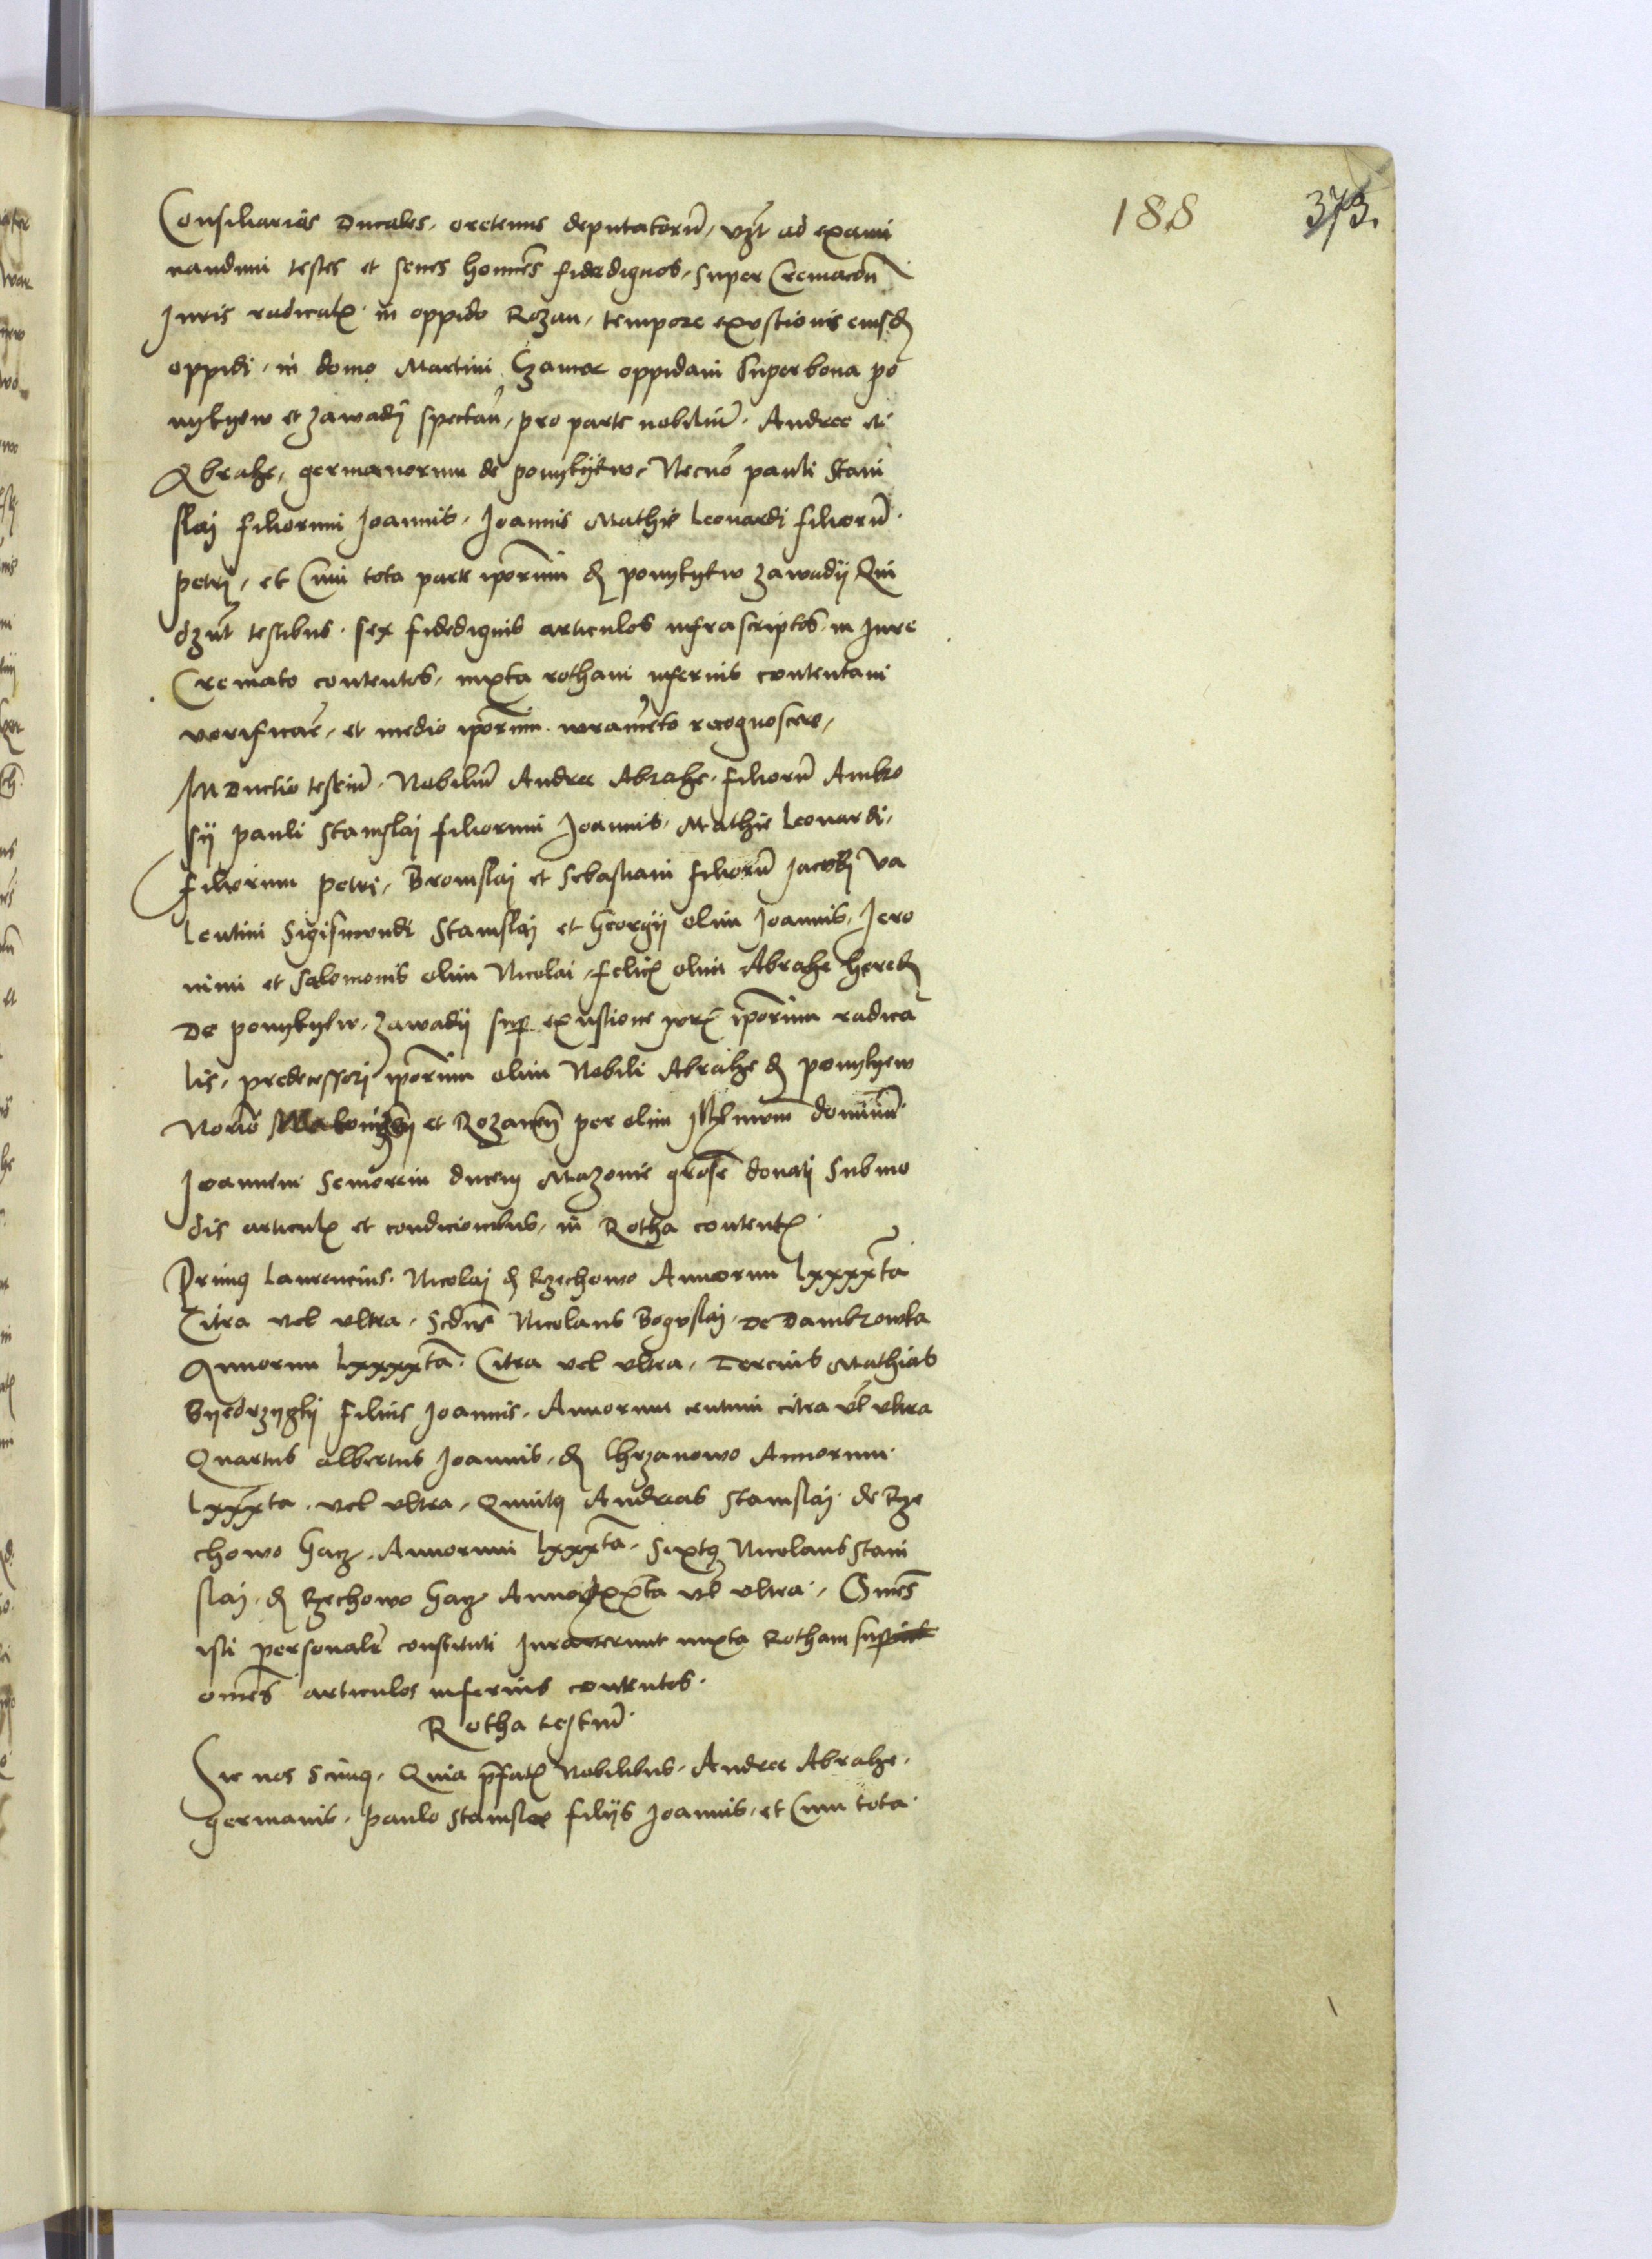 188 373.
Consiliarios Ducales, oretenus deputatorū, vȝt ad exami
nandum testes et senes hōmēs fidedignos, super Cremacōn
Juris radicalꝭ in oppido Rozan, tempore exustionis eiusdꝫ
oppidi, in domo Martini oppidani super bona po
nykyew et zawady spectan̄, pro parte nobiliū Andree et
Abrahe, germanorum de ponykyew, Necnō pauli Stani
slai filiorum Joannis, Joannis Mathie Leonardi filiorū
petri, et Cum tota parte ipōrum dꝫ ponykyew zawady Qui
dȝnt testibus sex fidedignis articulos infrascriptos in Jure
Cremato contentos, iuxta rotham inferius contentam
verificarē, et medio ipōrum iuramēto recognoscere,
Inductio testiū Nobiliū Andree Abrahe filiorū Ambro
sy pauli Stanislai filiorum Joannis, Mathie Leonardi,
filiorum petri, Bronislai et Sebastiani filiorū Jacobi Va
lentini Sigismundi Stanislai et Georgy olim Joannis, Jero
nimi et Salomonis olim Nicolai, felicꝭ olim Abrahe heredꝫ
De ponykyew, zawady sup exustione ipōrum radica
lis, predecessori ipōrum olim Nobili Abrahe dꝫ ponykyew
et Rozanen̄ per olim Illmum dominum
Joannem Seniorem ducem Mazouie grōse donati Sub mo
dis articulꝭ et condicionibus, in Rotha contentꝭ
Primus Laurencius Nicolai dꝫ Rzechowo Annorum lxxxxta
Citra vel vltra, Scdus Nicolaus Boguslai, De Dambrowka
Annorum lxxxxta Citra vel vltra, Tercius Mathias
Byedrzyzky filius Joannis, Annorum centum citra vl vltra
Quartus albertus Joannis, dꝫ Chrzanowo Annorum
lxxxta vel vltra, Quintus Andreas Stanislai de Rze
chowo Gacz, Annorum lxxxta, Sextus Nicolaus Stani
slai, dꝫ Rzechowo Gacz Anno lxxta vl vltra, Om̄es
isti personalr̄ constituti Jurauerunt iuxta Rotham sup
om̄es articulos inferius contentos.
Rotha testiū
Sic nos scimus, Quia pr̄fatꝭ Nobilibus, Andree Abrahe,
germanis, paulo Stanislao filys Joannis, et Cum tota